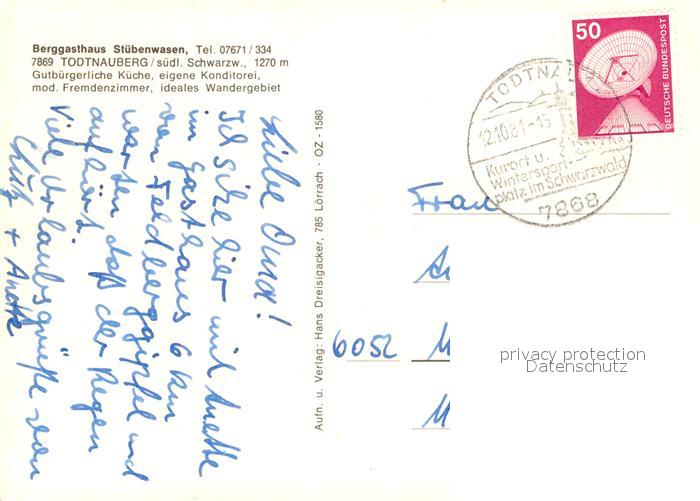 Berggasthaus Stübenwasen, Tel. 07671/334
7869 TODTNAUBERG/südl. Schwarzw., 1270 m
Gutbürgerliche Küche, eigene Konditorei,
mod. Fremdenzimmer, ideales Wandergebiet
Liebe Oma!
Ich sitze hier mit Anette
im Gasthaus 6 km
vom Feldberggipfel und
warten daß der Regen
aufhört.
Viele Urlaubsgrüße von
+ Anette
Aufn. u. Verlag: Hans Dreisigacker, 785 Lörrach · OZ · 1580
50
DEUTSCHE BUNDESPOST
TODTNAU
12.10.81-15
Kurort u.
Wintersport-
platz im Schwarzwald
7868
Frau
6052 M
M
privacy protection
Datenschutz